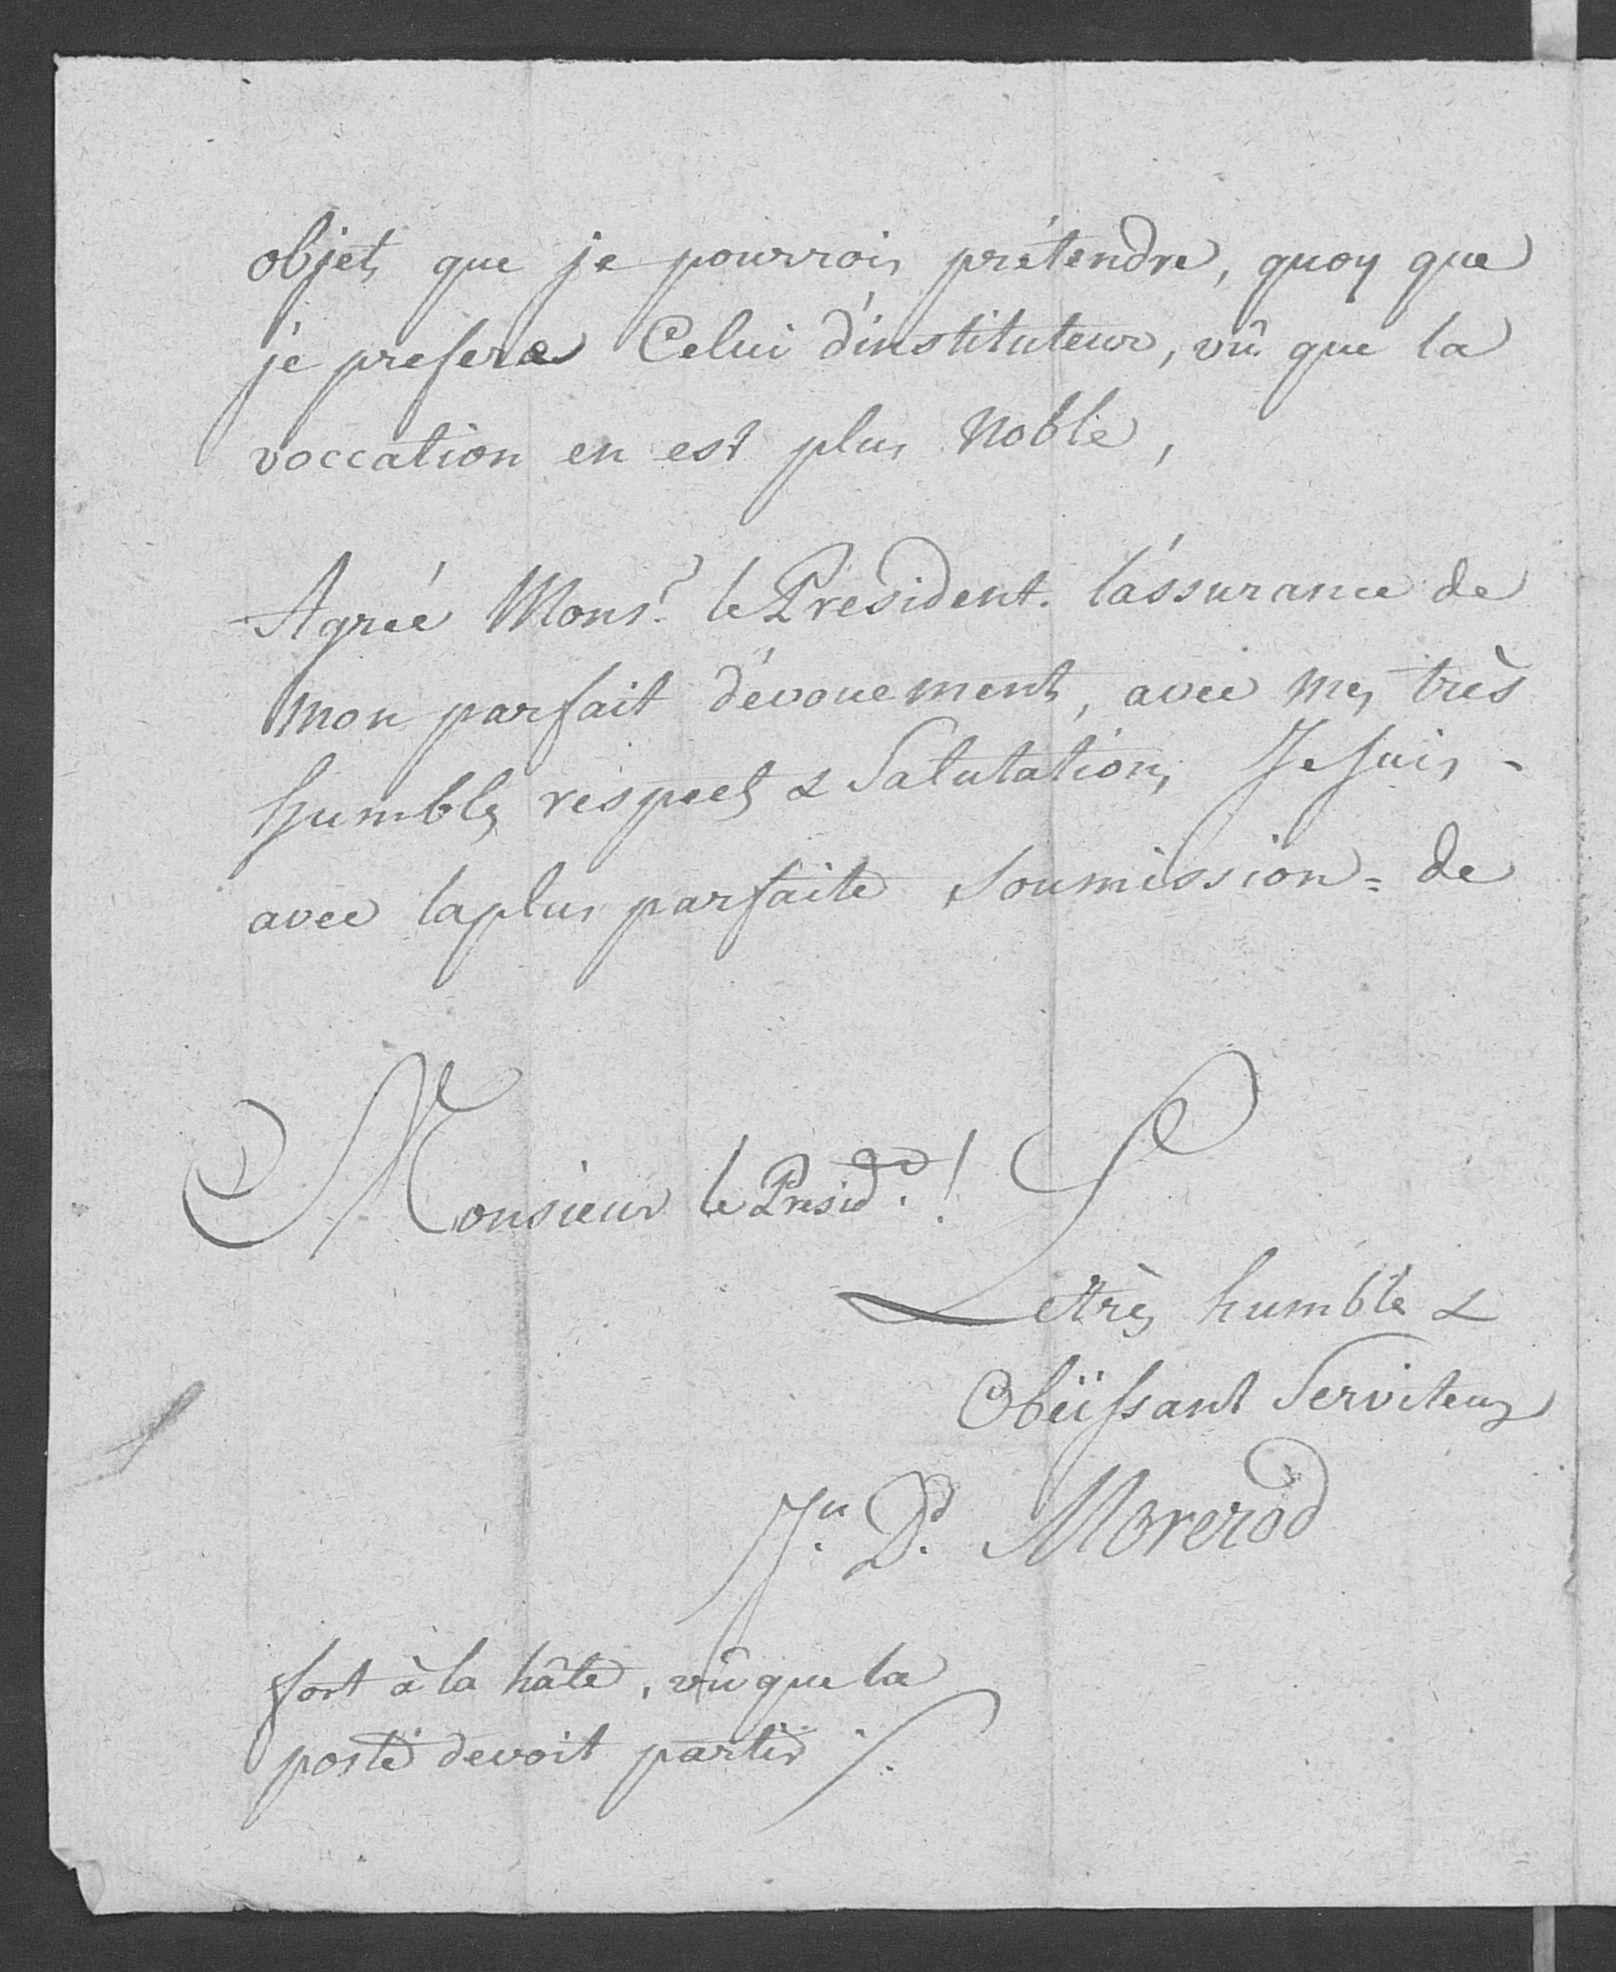 objets que je pourrois prétendre, quoy que
je prefere Celui d'instituteur, vû que la
voccation en est plus Noble,
Agreé Mons.r le Président. l'assurance de
mon parfait dévouement, avec mes très
humbles respects & Salutations, Je suis -
avec la plus parfaite Soumission = de
Monsieur le Presid.!
Le très humble &
Obéïssant Serviteur
Jn. Dd. Morerod
fort à la hâte, vû que la
poste devoit partir /.